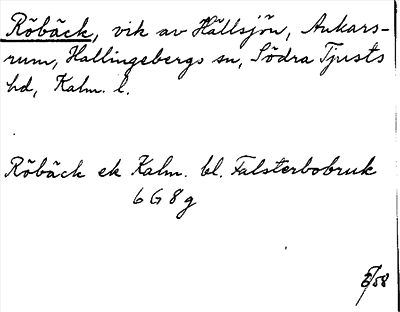 Röbäck, vik av Hällsjön, Ankars-
rum, Hallingebergs sn, Södra Tjusts
hd, Kalm. l.
Röbäck ek Kalm. bl. Falsterbobruk
6 G 8 g